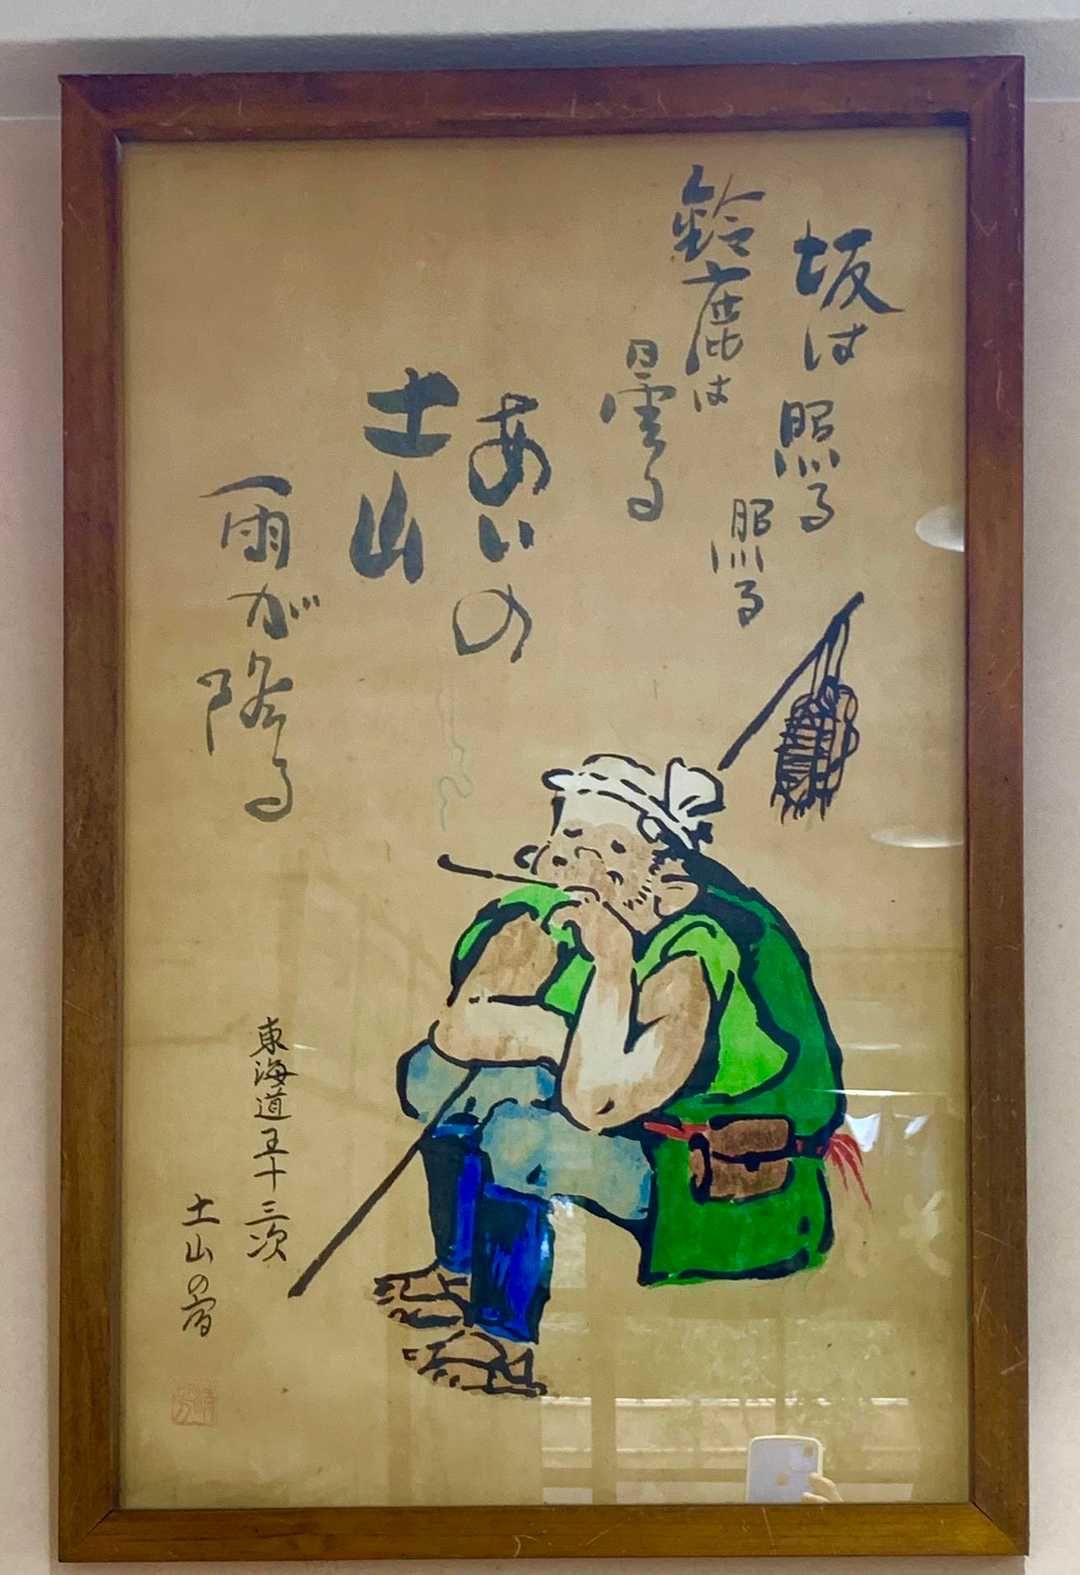 坂は照る
照る
鈴鹿は
曇る
あいの
土山
雨が降る
東海道五十三次
土山の宿